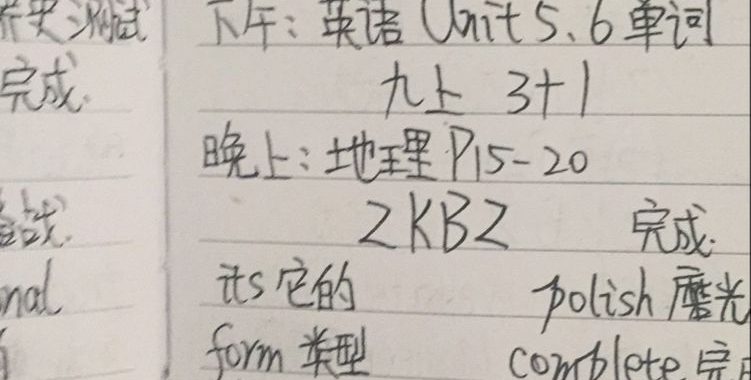 测试 下午：英语 Unit 5、6 单词
完成. 九上 3+1
晚上：地理 P15-20
ZKBZ 完成.
nal its 它的 polish 磨光
form 类型 complete 完